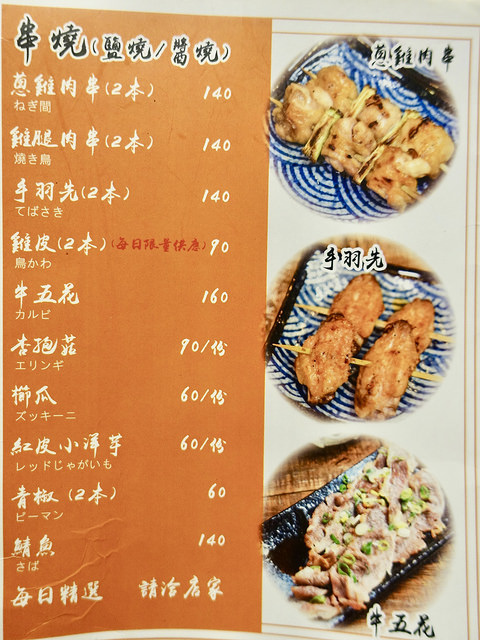 串燒(鹽燒/醬燒)
蔥雞肉串(2本) 140
ねぎ間
雞腿肉串(2本) 140
燒き鳥
手羽先(2本) 140
てばさき
雞皮(2本)(每日限量供應) 90
鳥かわ
牛五花 160
カルビ
杏鮑菇 90/份
エリンギ
櫛瓜 60/份
ズッキーニ
紅皮小洋芋 60/份
レッドじゃがいも
青椒(2本) 60
ピーマン
鯖魚 140
さば
每日精選 請洽店家
蔥雞肉串
手羽先
牛五花